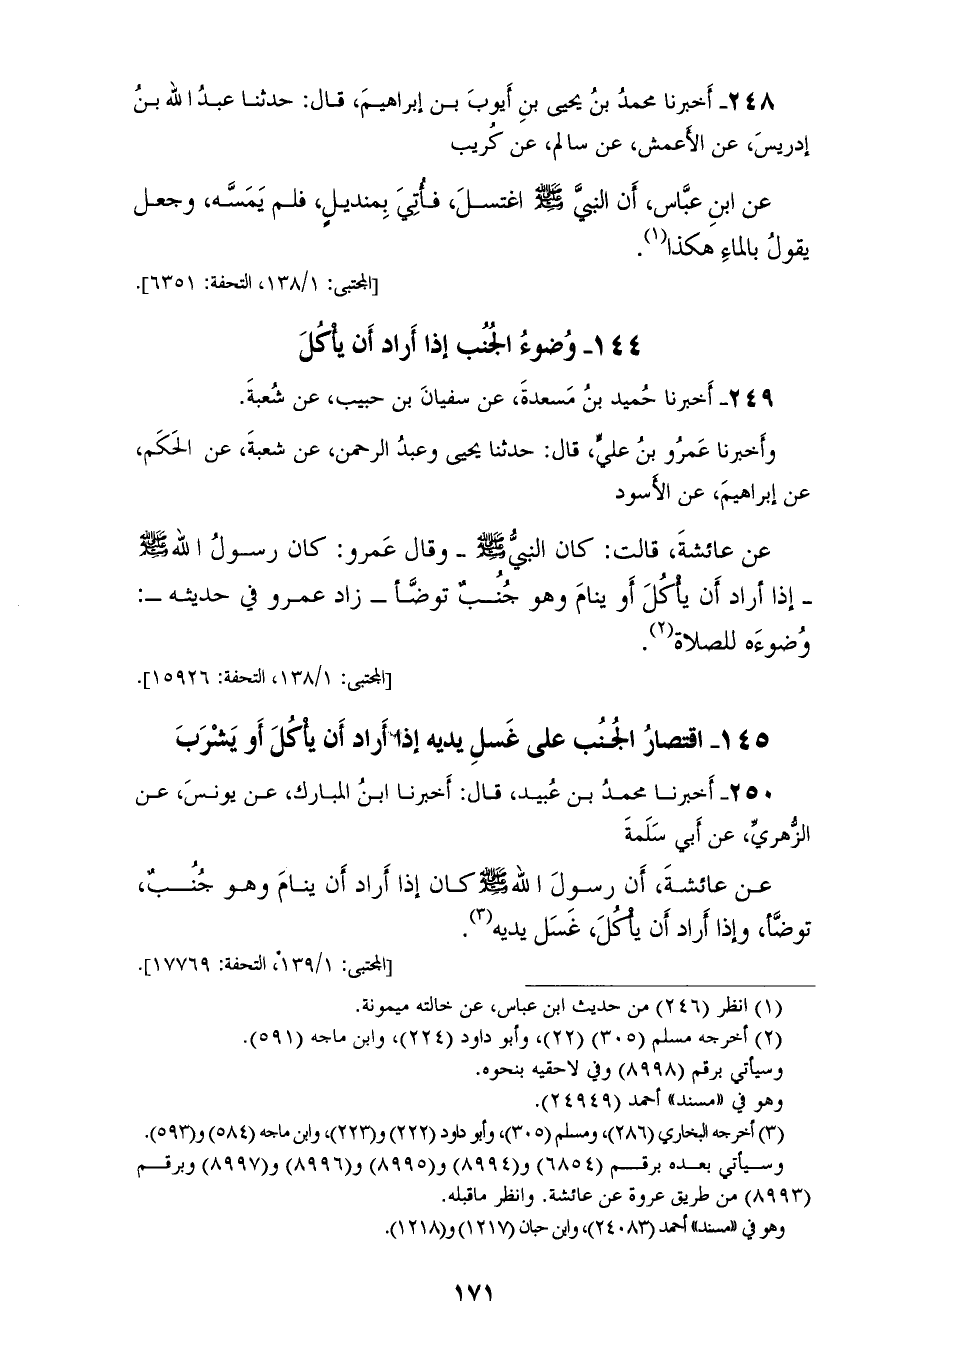 ٢٤٨ـ أَخبرنا محمدُ بنُ يحيى بنِ أَيوبَ بـن إبراهيـمَ، قـال: حدثنـا عبـدُ الله بـنُ
إدريسَ، عن الأَعمش، عن سالم، عن كُريب
عن ابنِ عبَّاس، أَن النبيَّ ﷺ اغتسـلَ، فـأُتِيَ بِمنديـلٍ، فلـم يَمَسَّـه، وجعـل
يقولُ بالماءِ هكذا(١).
[المجتبى: ١٣٨/١، التحفة: ٦٣٥١].
١٤٤ـ وُضوءُ الجُنُب إذا أَراد أَن يأْكُلَ
٢٤٩ـ أَخبرنا حُميد بنُ مَسعدةَ، عن سفيانَ بن حبيب، عن شُعبةَ.
وأَخبرنا عَمرُو بنُ عليٍّ، قال: حدثنا يحيى وعبدُ الرحمن، عن شعبةَ، عن الحَكَم،
عن إبراهيمَ، عن الأَسود
عن عائشةَ، قالت: كان النبيُّ ﷺ ـ وقال عَمرو: كان رسـولُ الله ﷺ
ـ إذا أراد أَن يأْكُلَ أَو ينامَ وهو جُنُـبٌ توضَّـأ ـ زاد عمـرو في حديثـه ـ:
وُضوءَه للصلاة(٢).
[المجتبى: ١٣٨/١، التحفة: ١٥٩٢٦].
١٤٥ـ اقتصارُ الجُنُب على غَسلِ يديه إذا أَراد أَن يأْكُلَ أَو يَشْرَبَ
٢٥٠ـ أَخبرنـا محمـدُ بـن عُبيـد، قـال: أَخبرنـا ابـنُ المبارك، عـن يونـسَ، عـن
الزُّهريِّ، عن أَبي سَلَمةَ
عـن عائشـةَ، أَن رسـولَ الله ﷺ كـان إذا أَراد أَن ينـامَ وهـو جُنُـبٌ،
توضَّأ، وإذا أَراد أَن يأْكُلَ، غَسَل يديه(٣).
[المجتبى: ١٣٩/١، التحفة: ١٧٧٦٩].
(١) انظر (٢٤٦) من حديث ابن عباس، عن خالته ميمونة.
(٢) أخرجه مسلم (٣٠٥) (٢٢)، وأبو داود (٢٢٤)، وابن ماجه (٥٩١).
وسيأتي برقم (٨٩٩٨) وفي لاحقيه بنحوه.
وهو في «مسند» أحمد (٢٤٩٤٩).
(٣) أخرجه البخاري (٢٨٦)، ومسلم (٣٠٥)، وأبو داود (٢٢٢) و(٢٢٣)، وابن ماجه (٥٨٤) و(٥٩٣).
وسـيأتي بعـده برقـم (٦٨٥٤) و(٨٩٩٤) و(٨٩٩٥) و(٨٩٩٦) و(٨٩٩٧) وبرقـم
(٨٩٩٣) من طريق عروة عن عائشة. وانظر ماقبله.
وهو في «مسند» أحمد (٢٤٠٨٣)، وابن حبان (١٢١٧) و(١٢١٨).
١٧١